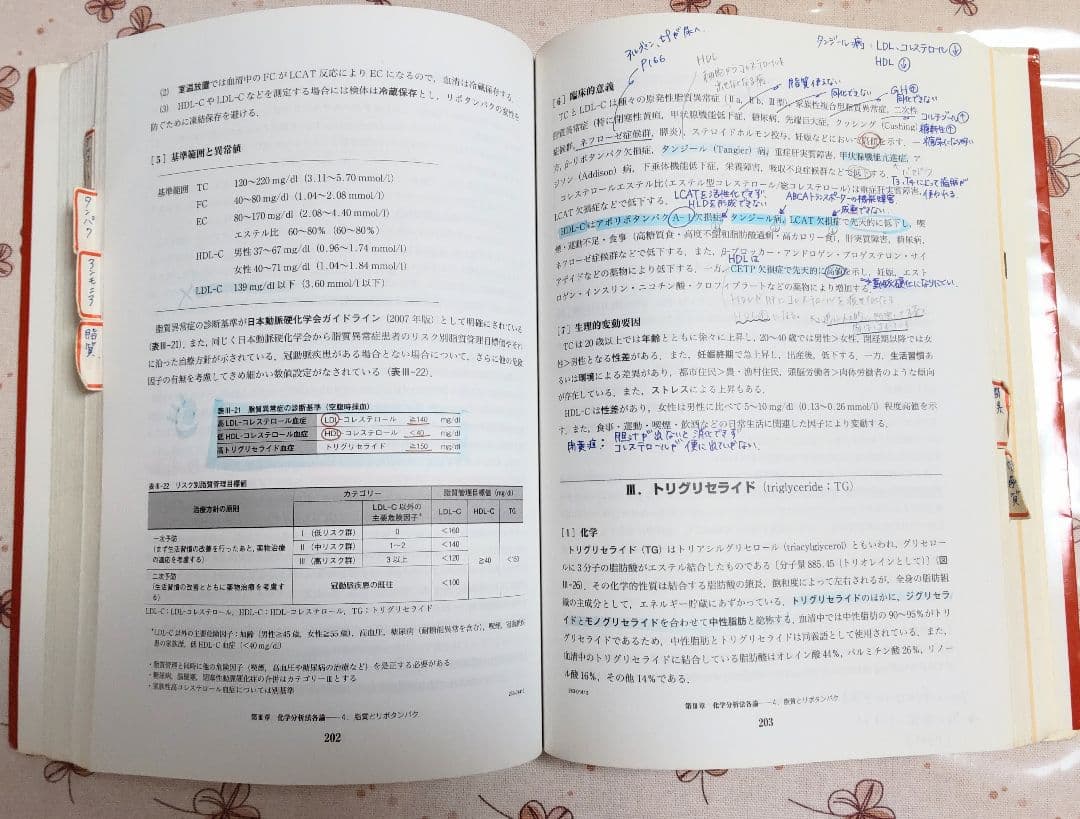 (2) 室温放置では血清中のFCがLCAT反応によりECになるので，血清は冷蔵保存する．
(3) HDL-CやLDL-Cなどを測定する場合には検体は冷蔵保存とし，リポタンパクの変性を
防ぐために凍結保存を避ける．
[5] 基準範囲と異常値
基準範囲 TC 120〜220 mg/dl (3.11〜5.70 mmol/l)
FC 40〜80 mg/dl (1.04〜2.08 mmol/l)
EC 80〜170 mg/dl (2.08〜4.40 mmol/l)
エステル比 60〜80% (60〜80%)
HDL-C 男性 37〜67 mg/dl (0.96〜1.74 mmol/l)
女性 40〜71 mg/dl (1.04〜1.84 mmol/l)
LDL-C 139 mg/dl 以下 (3.60 mmol/l 以下)
脂質異常症の診断基準が日本動脈硬化学会ガイドライン（2007年版）として明確にされている
(表Ⅲ-21)．また，同じく日本動脈硬化学会から脂質異常症患者のリスク別脂質管理目標値やそれ
に沿った治療方針が示されている．冠動脈疾患がある場合とない場合について，さらに他の危険
因子の有無を考慮してきめ細かい数値設定がなされている（表Ⅲ-22）．
表Ⅲ-21 脂質異常症の診断基準（空腹時採血）
高LDL-コレステロール血症 LDL-コレステロール ≧140 mg/dl
低HDL-コレステロール血症 HDL-コレステロール <40 mg/dl
高トリグリセライド血症 トリグリセライド ≧150 mg/dl
表Ⅲ-22 リスク別脂質管理目標値
治療方針の原則 カテゴリー 脂質管理目標値 (mg/dl)
LDL-C以外の主要危険因子* LDL-C HDL-C TG
一次予防
（まず生活習慣の改善を行ったあと，薬物治療
の適応を考慮する）
Ⅰ（低リスク群） 0 <160
Ⅱ（中リスク群） 1〜2 <140
Ⅲ（高リスク群） 3以上 <120
≧40
二次予防
（生活習慣の改善とともに薬物治療を考慮す
る）
冠動脈疾患の既往 <100
LDL-C：LDL-コレステロール，HDL-C：HDL-コレステロール，TG：トリグリセライド
*LDL-C以外の主要危険因子：加齢（男性≧45歳，女性≧55歳），高血圧，糖尿病（耐糖能異常を含む），喫煙，冠動脈疾
患の家族歴，低HDL-C血症（<40 mg/dl）
・脂質管理と同時に他の危険因子（喫煙，高血圧や糖尿病の治療など）を是正する必要がある
・糖尿病，脳梗塞，閉塞性動脈硬化症の合併はカテゴリーⅢとする
・家族性高コレステロール血症については別基準
第Ⅲ章 化学分析法各論——4．脂質とリポタンパク
202
タンパク
アンモニア
脂質
P166
タンジール病：LDL，コレステロール↓
HDL↓
HDL
[6] 臨床的意義
脂質使えない
同化できない
GH↑
同化できない
TCとLDL-Cは種々の原発性脂質異常症（Ⅱa，Ⅱb，Ⅲ型），家族性複合型脂質異常症，二次性
コルチゾール↑
脂質異常症（特に閉塞性黄疸，甲状腺機能低下症，糖尿病，先端巨大症，クッシング（Cushing）
症候群，ネフローゼ症候群，膵炎），ステロイドホルモン投与，妊娠などにおいて高値を示す．一
方，β-リポタンパク欠損症，タンジール（Tangier）病，重症肝実質障害，甲状腺機能亢進症，ア
ジソン（Addison）病，下垂体機能低下症，栄養障害，吸収不良症候群などで低下する．
コレステロールエステル比（エステル型コレステロール/総コレステロール）は重症肝実質障害，
LCAT欠損症などで低下する．
LCATを活性化できず
HLDを形成できない
ABCAトランスポーターの機能障害
成熟できない
HDL-CはアポリポタンパクA-Ⅰ欠損症，タンジール病，LCAT欠損症で先天的に低下し，喫
煙・運動不足・食事（高糖質食・高度不飽和脂肪酸過剰・高カロリー食），肝実質障害，糖尿病，
ネフローゼ症候群などで低下する．また，β-ブロッカー・アンドロゲン・プロゲステロン・サイ
HDLは
アザイドなどの薬物により低下する．一方，CETP欠損症で先天的に高値を示し，妊娠，エスト
ロゲン・インスリン・ニコチン酸・クロフィブラートなどの薬物により増加する．
動脈硬化になりにくい．
[7] 生理的変動要因
TCは20歳以上では年齢とともに徐々に上昇し，20〜40歳では男性＞女性，閉経期以降では女
性＞男性となる性差がある．また，妊娠終期で急上昇し，出産後，低下する．一方，生活習慣あ
るいは環境による差異があり，都市住民＞農・漁村住民，頭脳労働者＞肉体労働者のような傾向
が存在している．また，ストレスによる上昇もある．
HDL-Cは性差があり，女性は男性に比べて5〜10 mg/dl (0.13〜0.26 mmol/l) 程度高値を示
す．また，食事・運動・喫煙・飲酒などの日常生活に関連した因子により変動する．
閉黄疸：胆汁が出ないと消化できず
コレステロールが便に出ていかない．
Ⅲ．トリグリセライド (triglyceride：TG)
[1] 化学
トリグリセライド（TG）はトリアシルグリセロール（triacylglycerol）ともいわれ，グリセロー
ルに3分子の脂肪酸がエステル結合したものである［分子量885.45（トリオレインとして）］（図
Ⅲ-26）．その化学的性質は結合する脂肪酸の鎖長，飽和度によって左右されるが，全身の脂肪組
織の主成分として，エネルギー貯蔵にあずかっている．トリグリセライドのほかに，ジグリセラ
イドとモノグリセライドを合わせて中性脂肪と総称する．血清中では中性脂肪の90〜95%がト
リグリセライドであるため，中性脂肪とトリグリセライドは同義語として使用されている．また，
血清中のトリグリセライドに結合している脂肪酸はオレイン酸44%，パルミチン酸26%，リノー
ル酸16%，その他14%である．
第Ⅲ章 化学分析法各論——4．脂質とリポタンパク
203